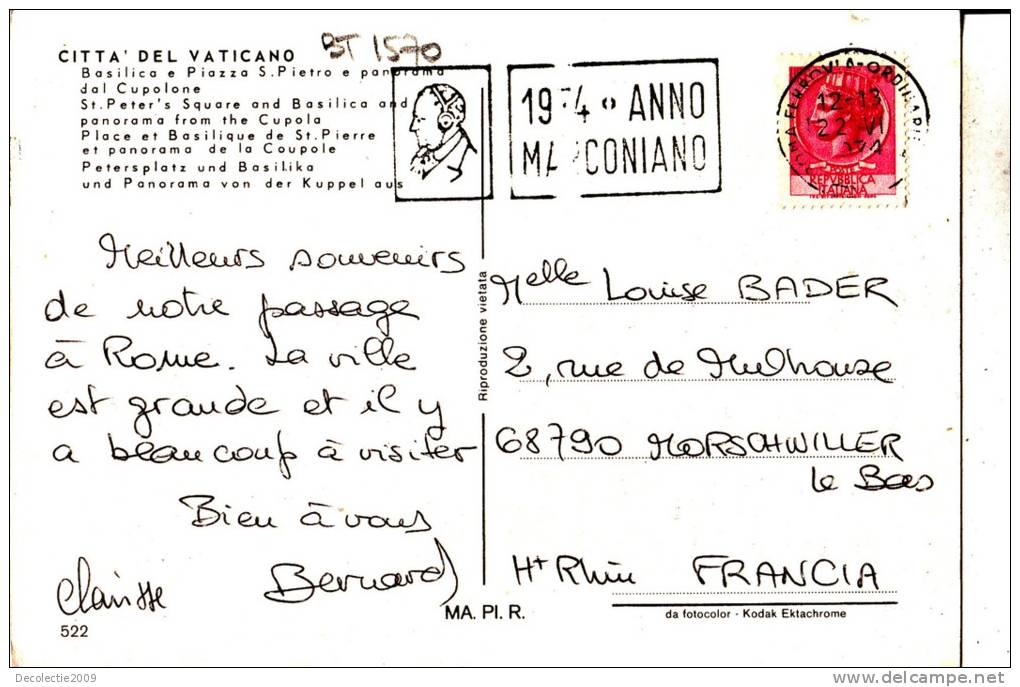 CITTA' DEL VATICANO
BT 1570
Basilica e Piazza S. Pietro e panorama
dal Cupolone
St. Peter's Square and Basilica and
panorama from the Cupola
Place et Basilique de St. Pierre
et panorama de la Coupole
Petersplatz und Basilika
und Panorama von der Kuppel aus
1974 ANNO
MARCONIANO
ROMA FERROVIA-ORDINARIE
12-13
22 VI
POSTE
REPVBBLICA
ITALIANA
Meilleurs souvenirs
de notre passage
à Rome. La ville
est grande et il y
a beaucoup à visiter
Bien à vous
Clarisse
Bernard
522
Riproduzione vietata
MA. PI. R.
Melle Louise BADER
2, rue de Mulhouse
68790 MORSCHWILLER
le Bas
Ht Rhin FRANCIA
da fotocolor - Kodak Ektachrome
Decolectie2009
www.delcampe.net